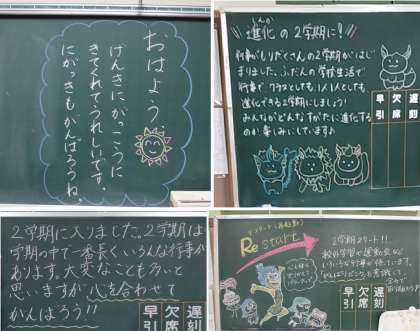 おはよう
げんきにがっこうに
きてくれてうれしいです。
にがっきもがんばろうね。
しんか
進化の2学期に!
行事がもりだくさんの2学期がはじ
まりました。ふだんの学校生活で
行事で クラスとしても、1人1人としても、
進化できる2学期にしましょう!
みんながどんなすがたに進化する
のか楽しみにしています♪
遅刻
欠席
早引
2学期に入りました。2学期は
学期の中で一番長く、いろんな行事が
あります。大変なことも多いと
思いますが 心を合わせて
がんばろう!!
遅刻
欠席
早引
Restart
2学期スタート!!
校外学習や運動会など
遅刻
欠席
早引